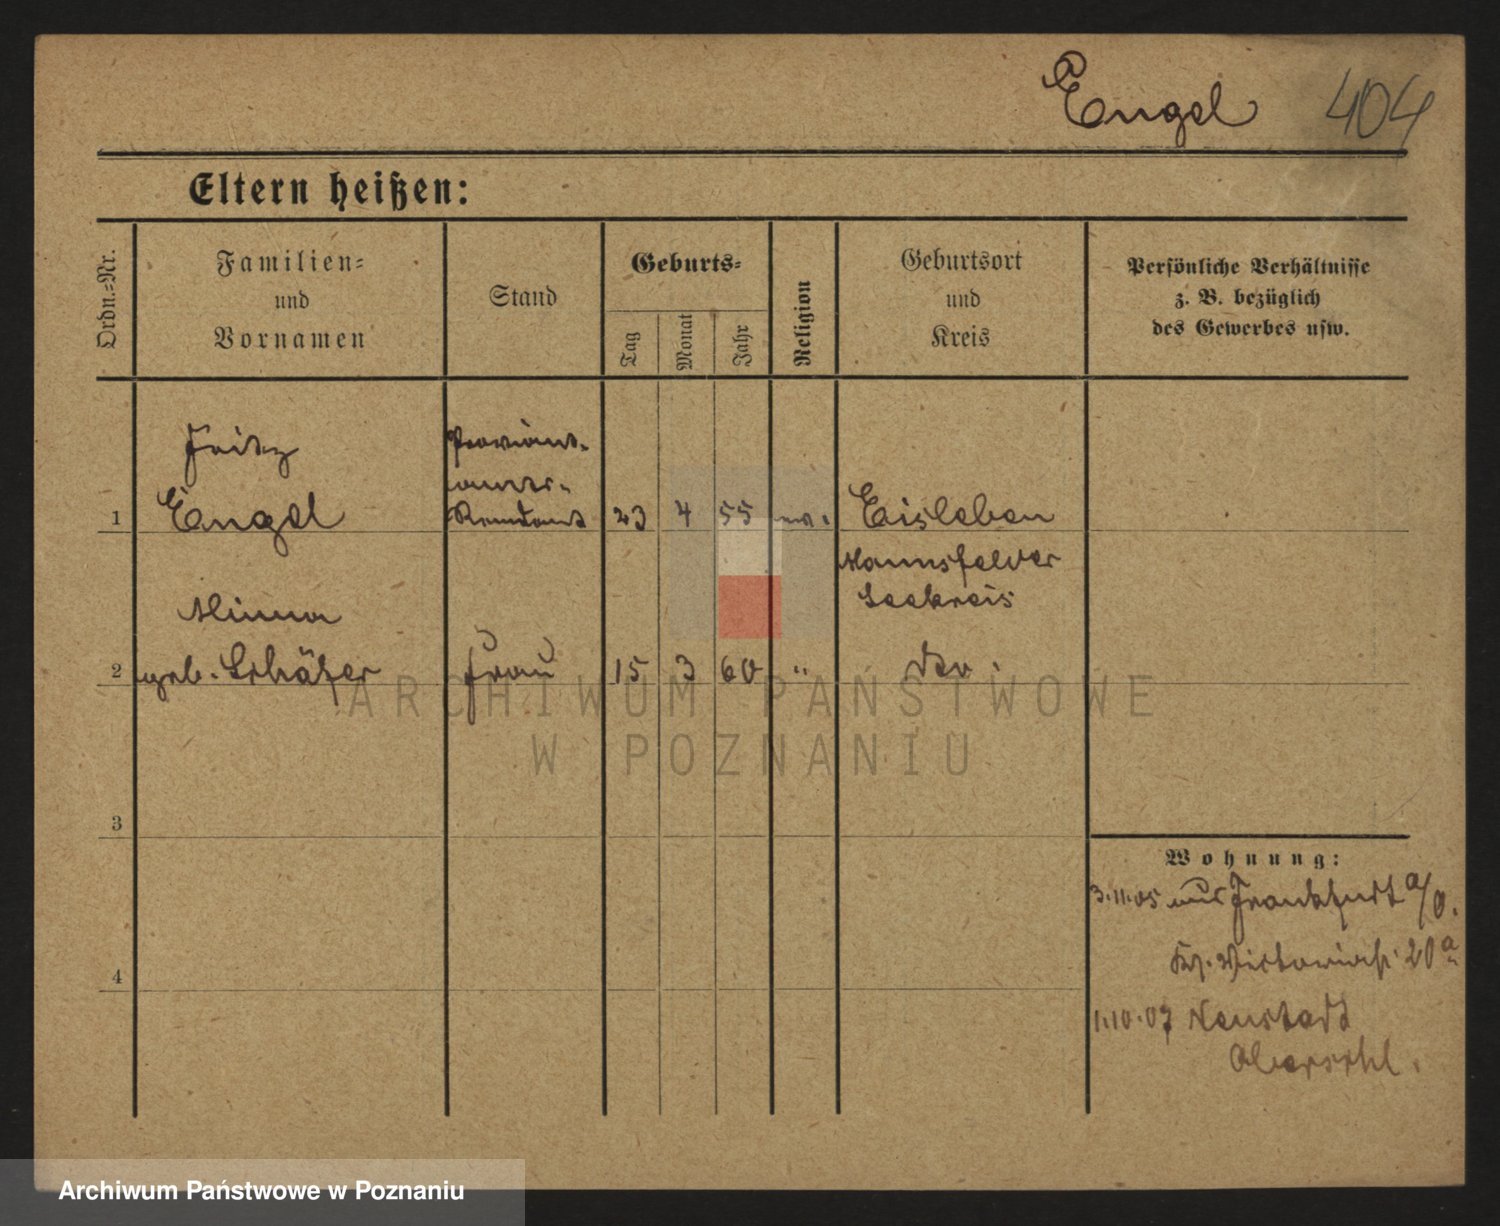 Engel 404
Eltern heißen:
Ordn.-Nr.
Familien-
und
Vornamen
Stand
Geburts-
Tag
Monat
Jahr
Religion
Geburtsort
und
Kreis
Persönliche Verhältnisse
z. B. bezüglich
des Gewerbes usw.
Fritz
1 Engel
Proviant-
amts-
Rendant
23 4 55 ev.
Eisleben
Mansfelder
Seekreis
Minna
2 geb. Schäfer Frau 15 3 60 " do.
3
4
Wohnung:
3.11.05 aus Frankfurt a/O.
Viktoriastr. 20a
1.10.07 Neustadt
Oberschl.
ARCHIWUM PAŃSTWOWE
W POZNANIU
Archiwum Państwowe w Poznaniu